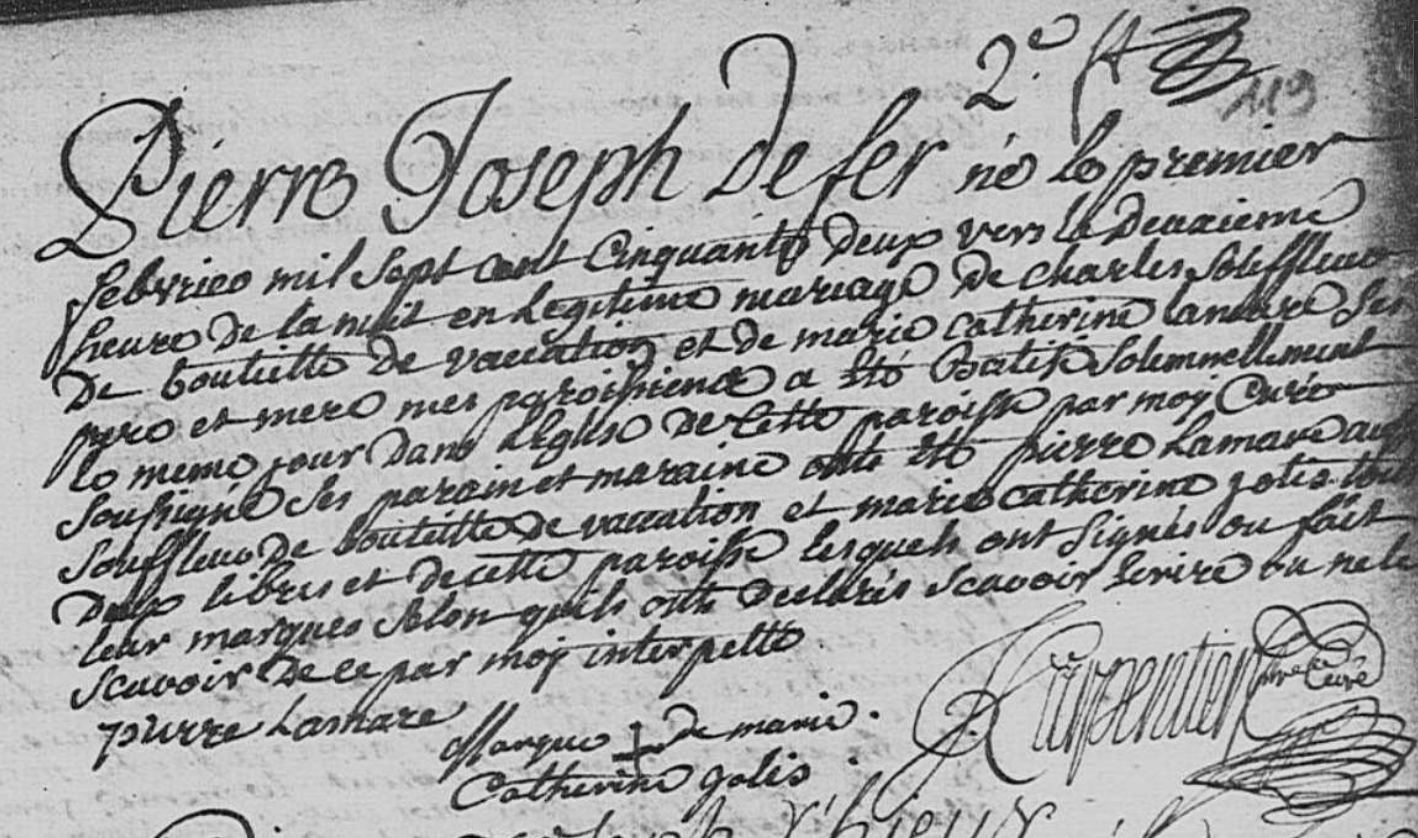 2e.
119
Pierre Joseph Defer né le premier
febvrier mil sept cent Cinquante deux vers la Deuxieme
heure De la nuit en Legitime mariage De Charles souffleur
De bouteille De vaccation et de marie catherine lamare ses
pere et mere mes paroissiens a été Batisé solemnellement
le meme jour Dans L'eglise De Cette paroisse par moy Curé
soussigné ses parain et maraine onts été pierre Lamare aussi
souffleur De bouteille De vaccation et marie catherine golis tous
Deux libres et de cette paroisse lesquels ont signés ou fait
leur marques selon quils onts declarés scavoir Ecrire ou ne le
scavoir De ce par moy interpellé
pierre Lamare
Marque de marie
Catherine golis
Carpentier
ptre Curé